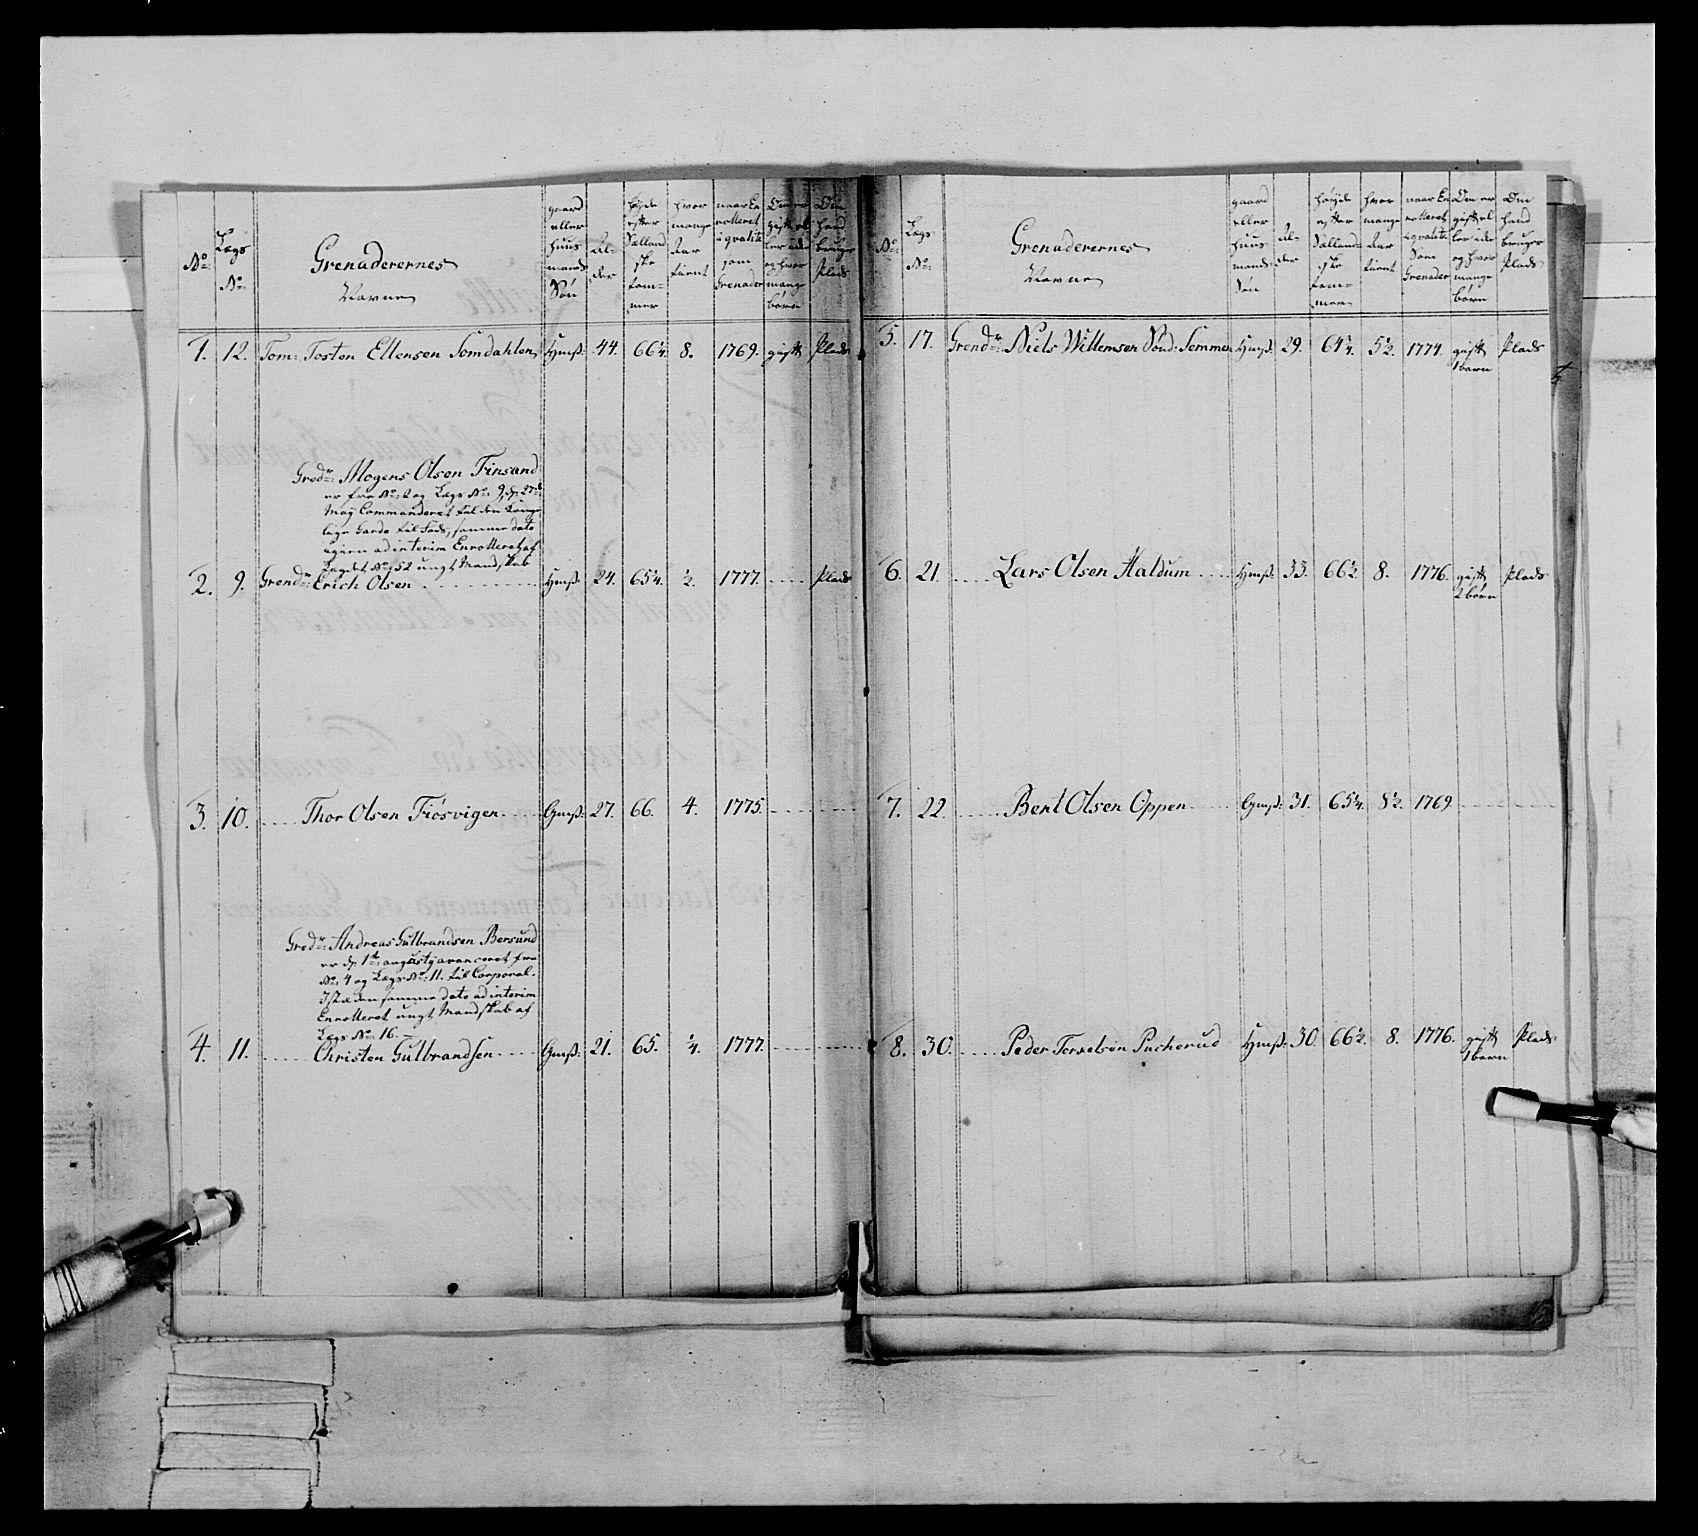 No:
Lægs No:
Grenaderernes Navne
gaard eller huus mands Søn
Al- der
høyde efter Siælland ske tom= mer
hvor mange Aar tient
naar En rolleret i qvalite som Grenader
Om er gift el ler ide og hvor mange børn
Om hand bruger Plads
1. 12. Tom: Tosten Ellensen Somdahlen Hmß: 44. 66¼. 8. 1769. gift Plads
Gred: Mogens Olsen Finsand
er fra No: 2 og Lægs No: 9, dp: 27de
May Commanderet til den Konge
lige Garde til Fods, samme dato
igien ad interim Enrolleret af
Lægdet No: 52 ungt Mandskab
2. 9. Grend: Erich Olsen Hmß: 24. 65¼. ½. 1777. Plads
3. 10. Thor Olsen Fiøsvigen Gmß: 27. 66. 4. 1775.
Gred: Andreas Gulbrandsen Bersund
er dp: 1te augusty avanceret fra
No: 4 og Lægs No: 11. til Corporal.
I stæden samme dato ad interim
Enrolleret ungt Mandskab af
Lægs No: 16
4. 11. Christen Gulbrandsen Gmß: 21. 65. ¼. 1777.
No:
Lægs No:
Grenaderernes Navne
gaard eller huus mands Søn
Al- der
høyde efter Siælland ske tom= mer
hvor mange Aar tient
naar En rolleret i qvalite Som Grenader
Om er gift el ler ide og hvor mange børn
Om hand bruger Plads
5. 17. Grend: Niels Willemsen Sønd: Semmen Hmß: 29. 64¼. 5½. 1774. gift 1 barn Plads
6. 21. Lars Olsen Haldum Hmß: 33. 66½. 8. 1776. gift 2 børn Plads
7. 22. Bent Olsen Oppen Gmß: 31. 65¼. 8½. 1769.
8. 30. Peder Torselsen Pucherud Hmß: 30. 66½. 8. 1776. gift 1 barn Plads